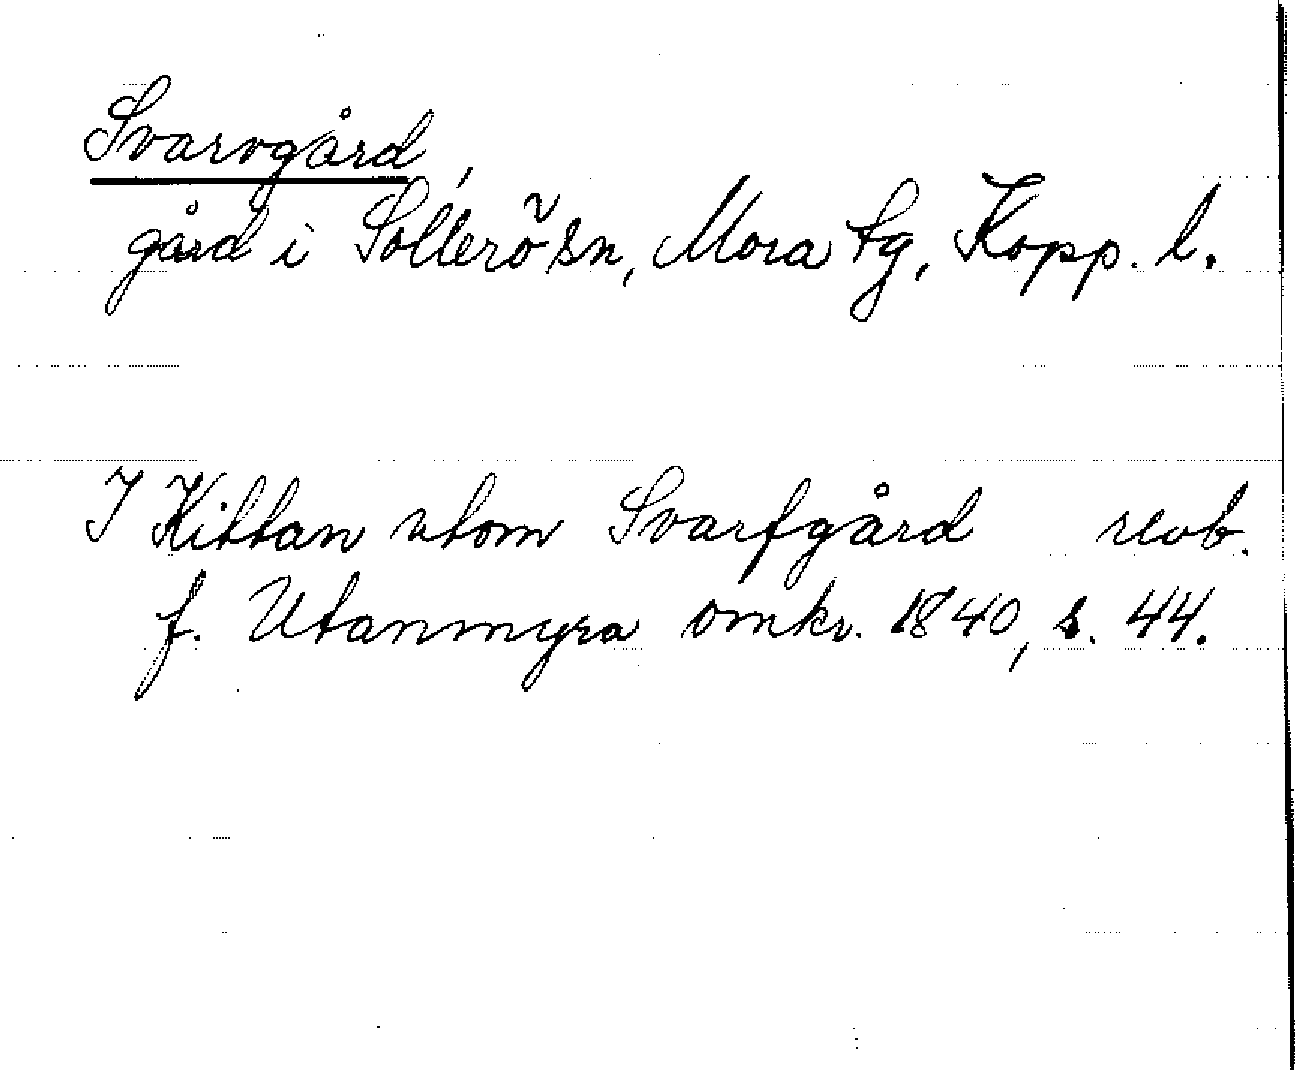 Svarvgård,
gård i Sollerö sn, Mora tg, Kopp. l.
I Kittan utom Svarfgård revb.
f. Utanmyra omkr. 1840, s. 44.